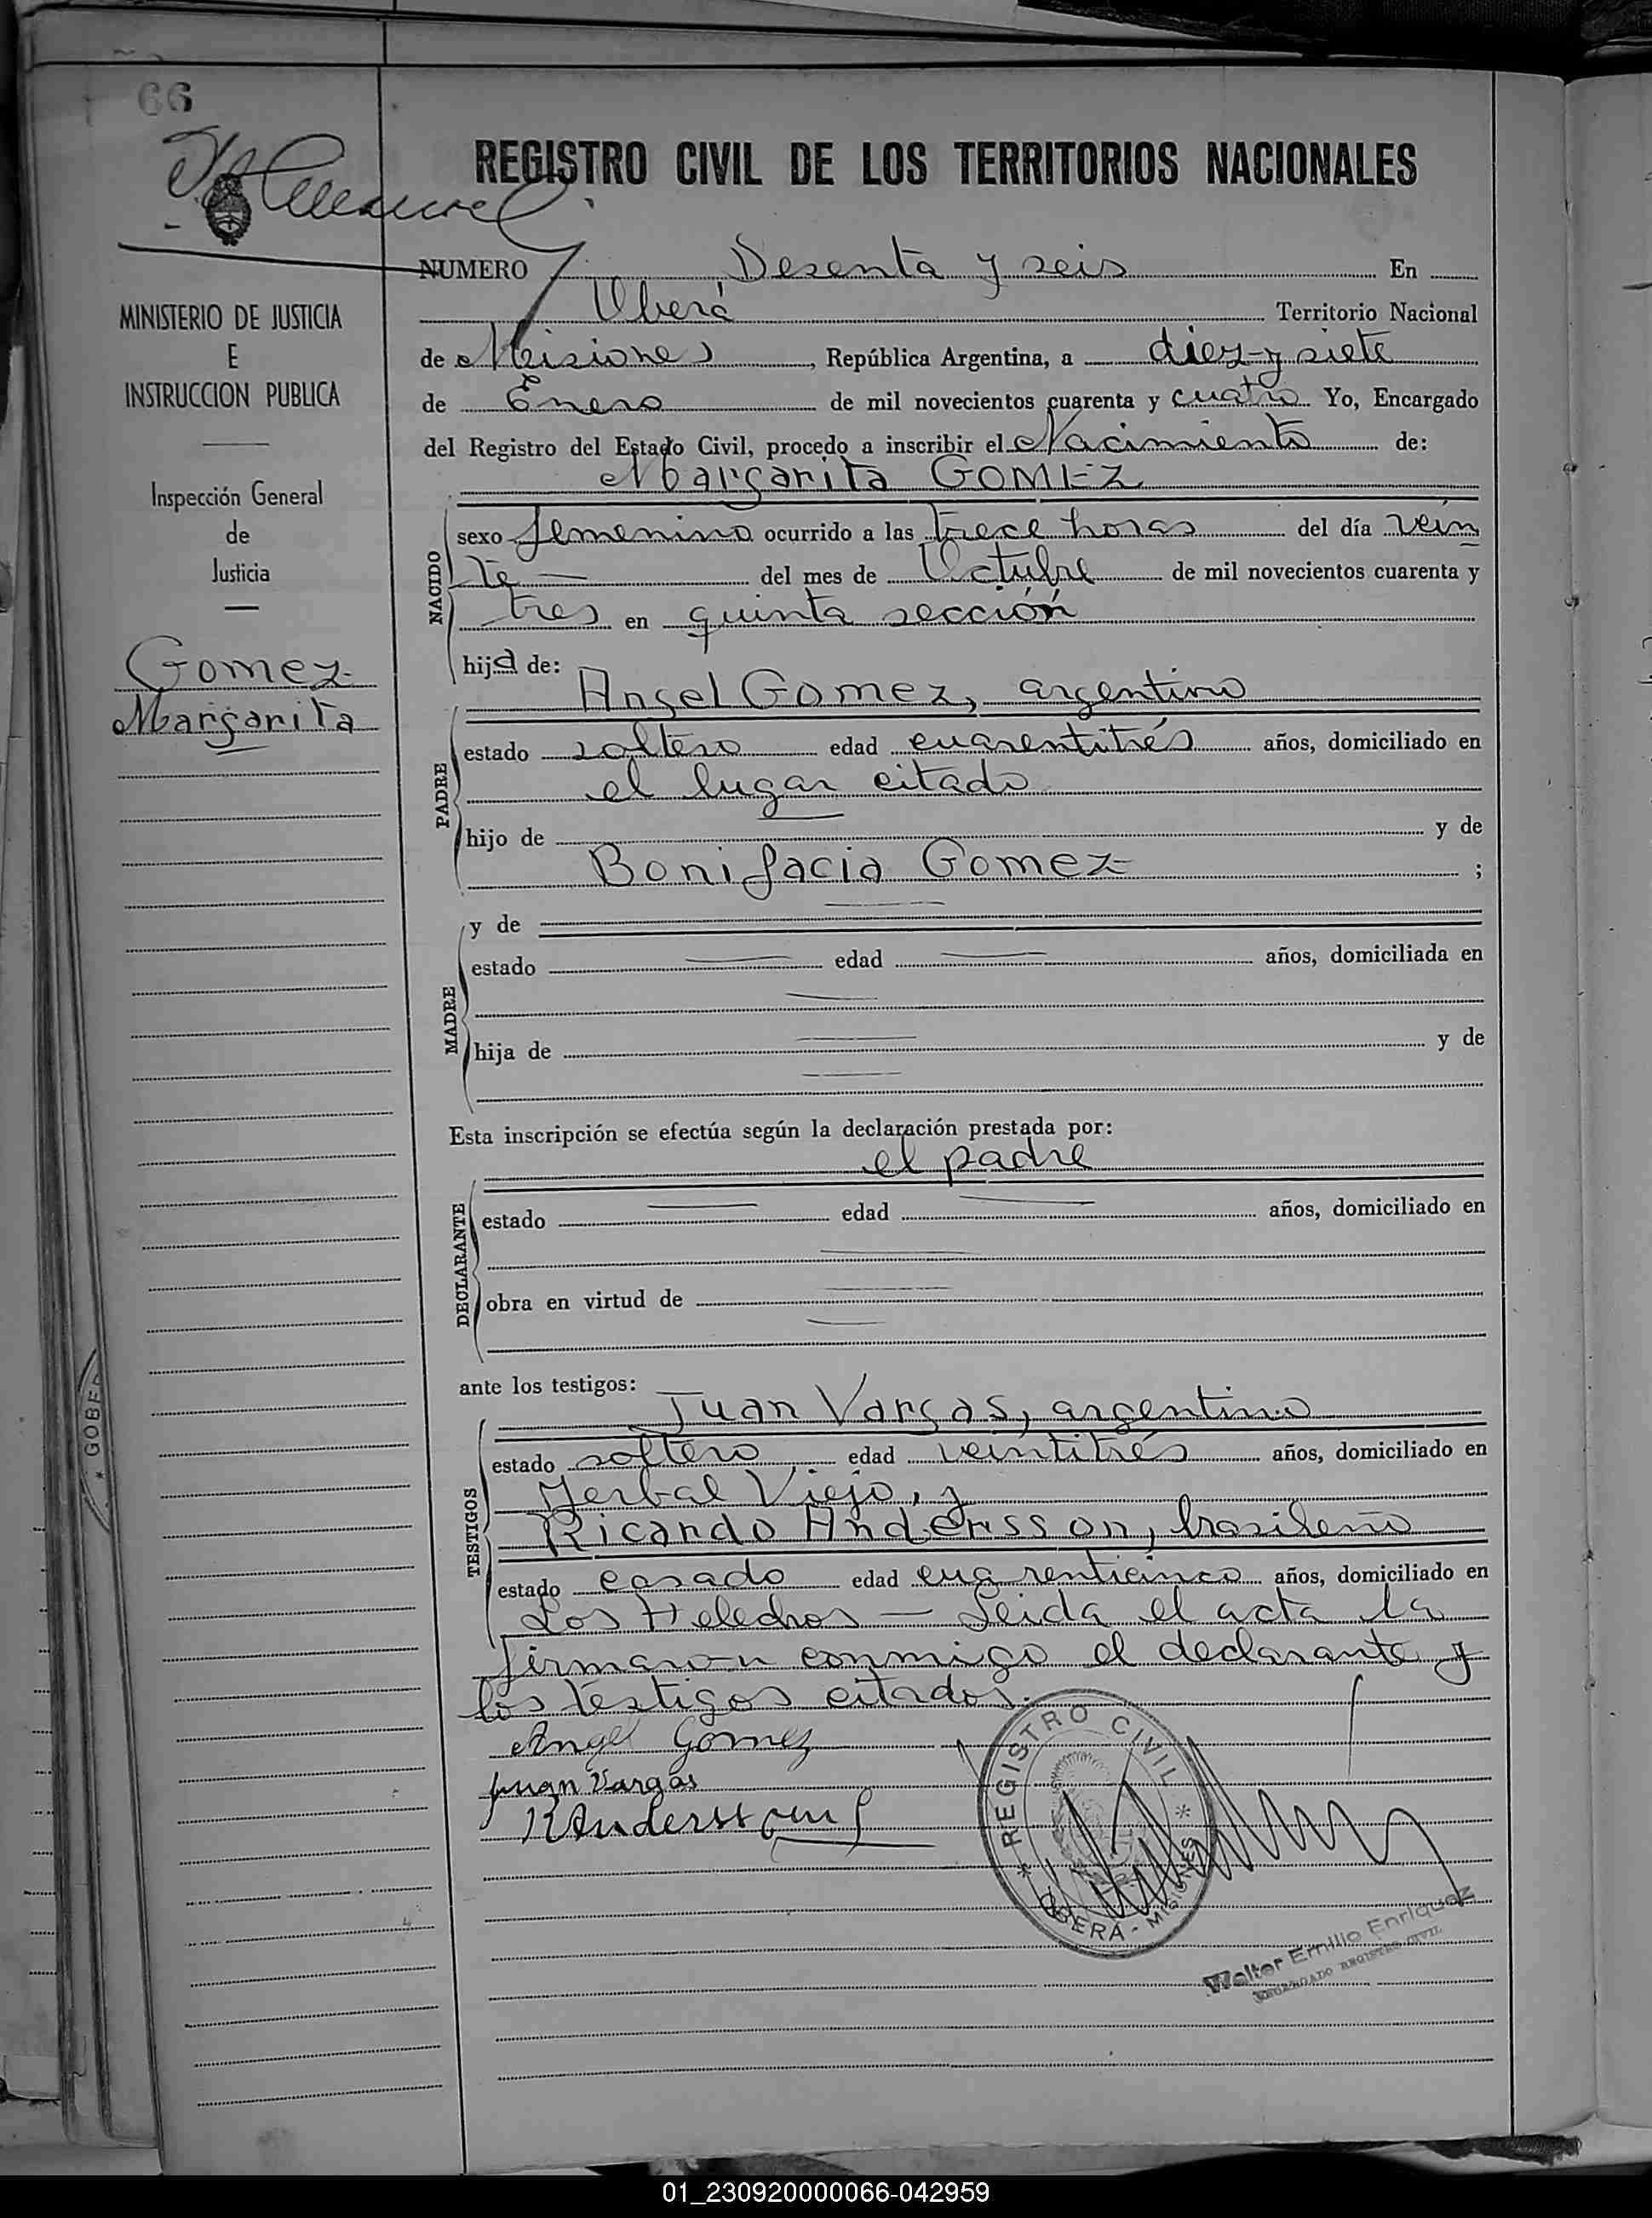 66
REGISTRO CIVIL DE LOS TERRITORIOS NACIONALES
NUMERO Sesenta y seis En
Oberá Territorio Nacional
de Misiones, República Argentina, a diez y siete
de Enero de mil novecientos cuarenta y cuatro Yo, Encargado
del Registro del Estado Civil, procedo a inscribir el Nacimiento de:
Margarita GOMEZ
MINISTERIO DE JUSTICIA
E
INSTRUCCION PUBLICA
Inspección General
de
Justicia
Gomez
Margarita
NACIDO
sexo femenino ocurrido a las trece horas del día vein
te — del mes de Octubre de mil novecientos cuarenta y
tres en quinta sección
hija de:
Angel Gomez, argentino
PADRE
estado soltero edad cuarentitrés años, domiciliado en
el lugar citado
hijo de y de
Bonifacia Gomez ;
MADRE
y de
estado — edad — años, domiciliada en
—
hija de — y de
—
Esta inscripción se efectúa según la declaración prestada por:
el padre
DECLARANTE
estado — edad — años, domiciliado en
—
obra en virtud de —
—
ante los testigos:
Juan Vargas, argentino
TESTIGOS
estado soltero edad veintitrés años, domiciliado en
Yerbal Viejo, y
Ricardo Andersson, brasileño
estado casado edad cuarenticinco años, domiciliado en
Los Helechos — Leida el acta la
firmaron conmigo el declarante y
los testigos citados.
Angel Gomez
Juan Vargas
R Andersson
* REGISTRO CIVIL *
OBERA - MISIONES
Walter Emilio Enriquez
ENCARGADO REGISTRO CIVIL
* GOBER
01_230920000066-042959